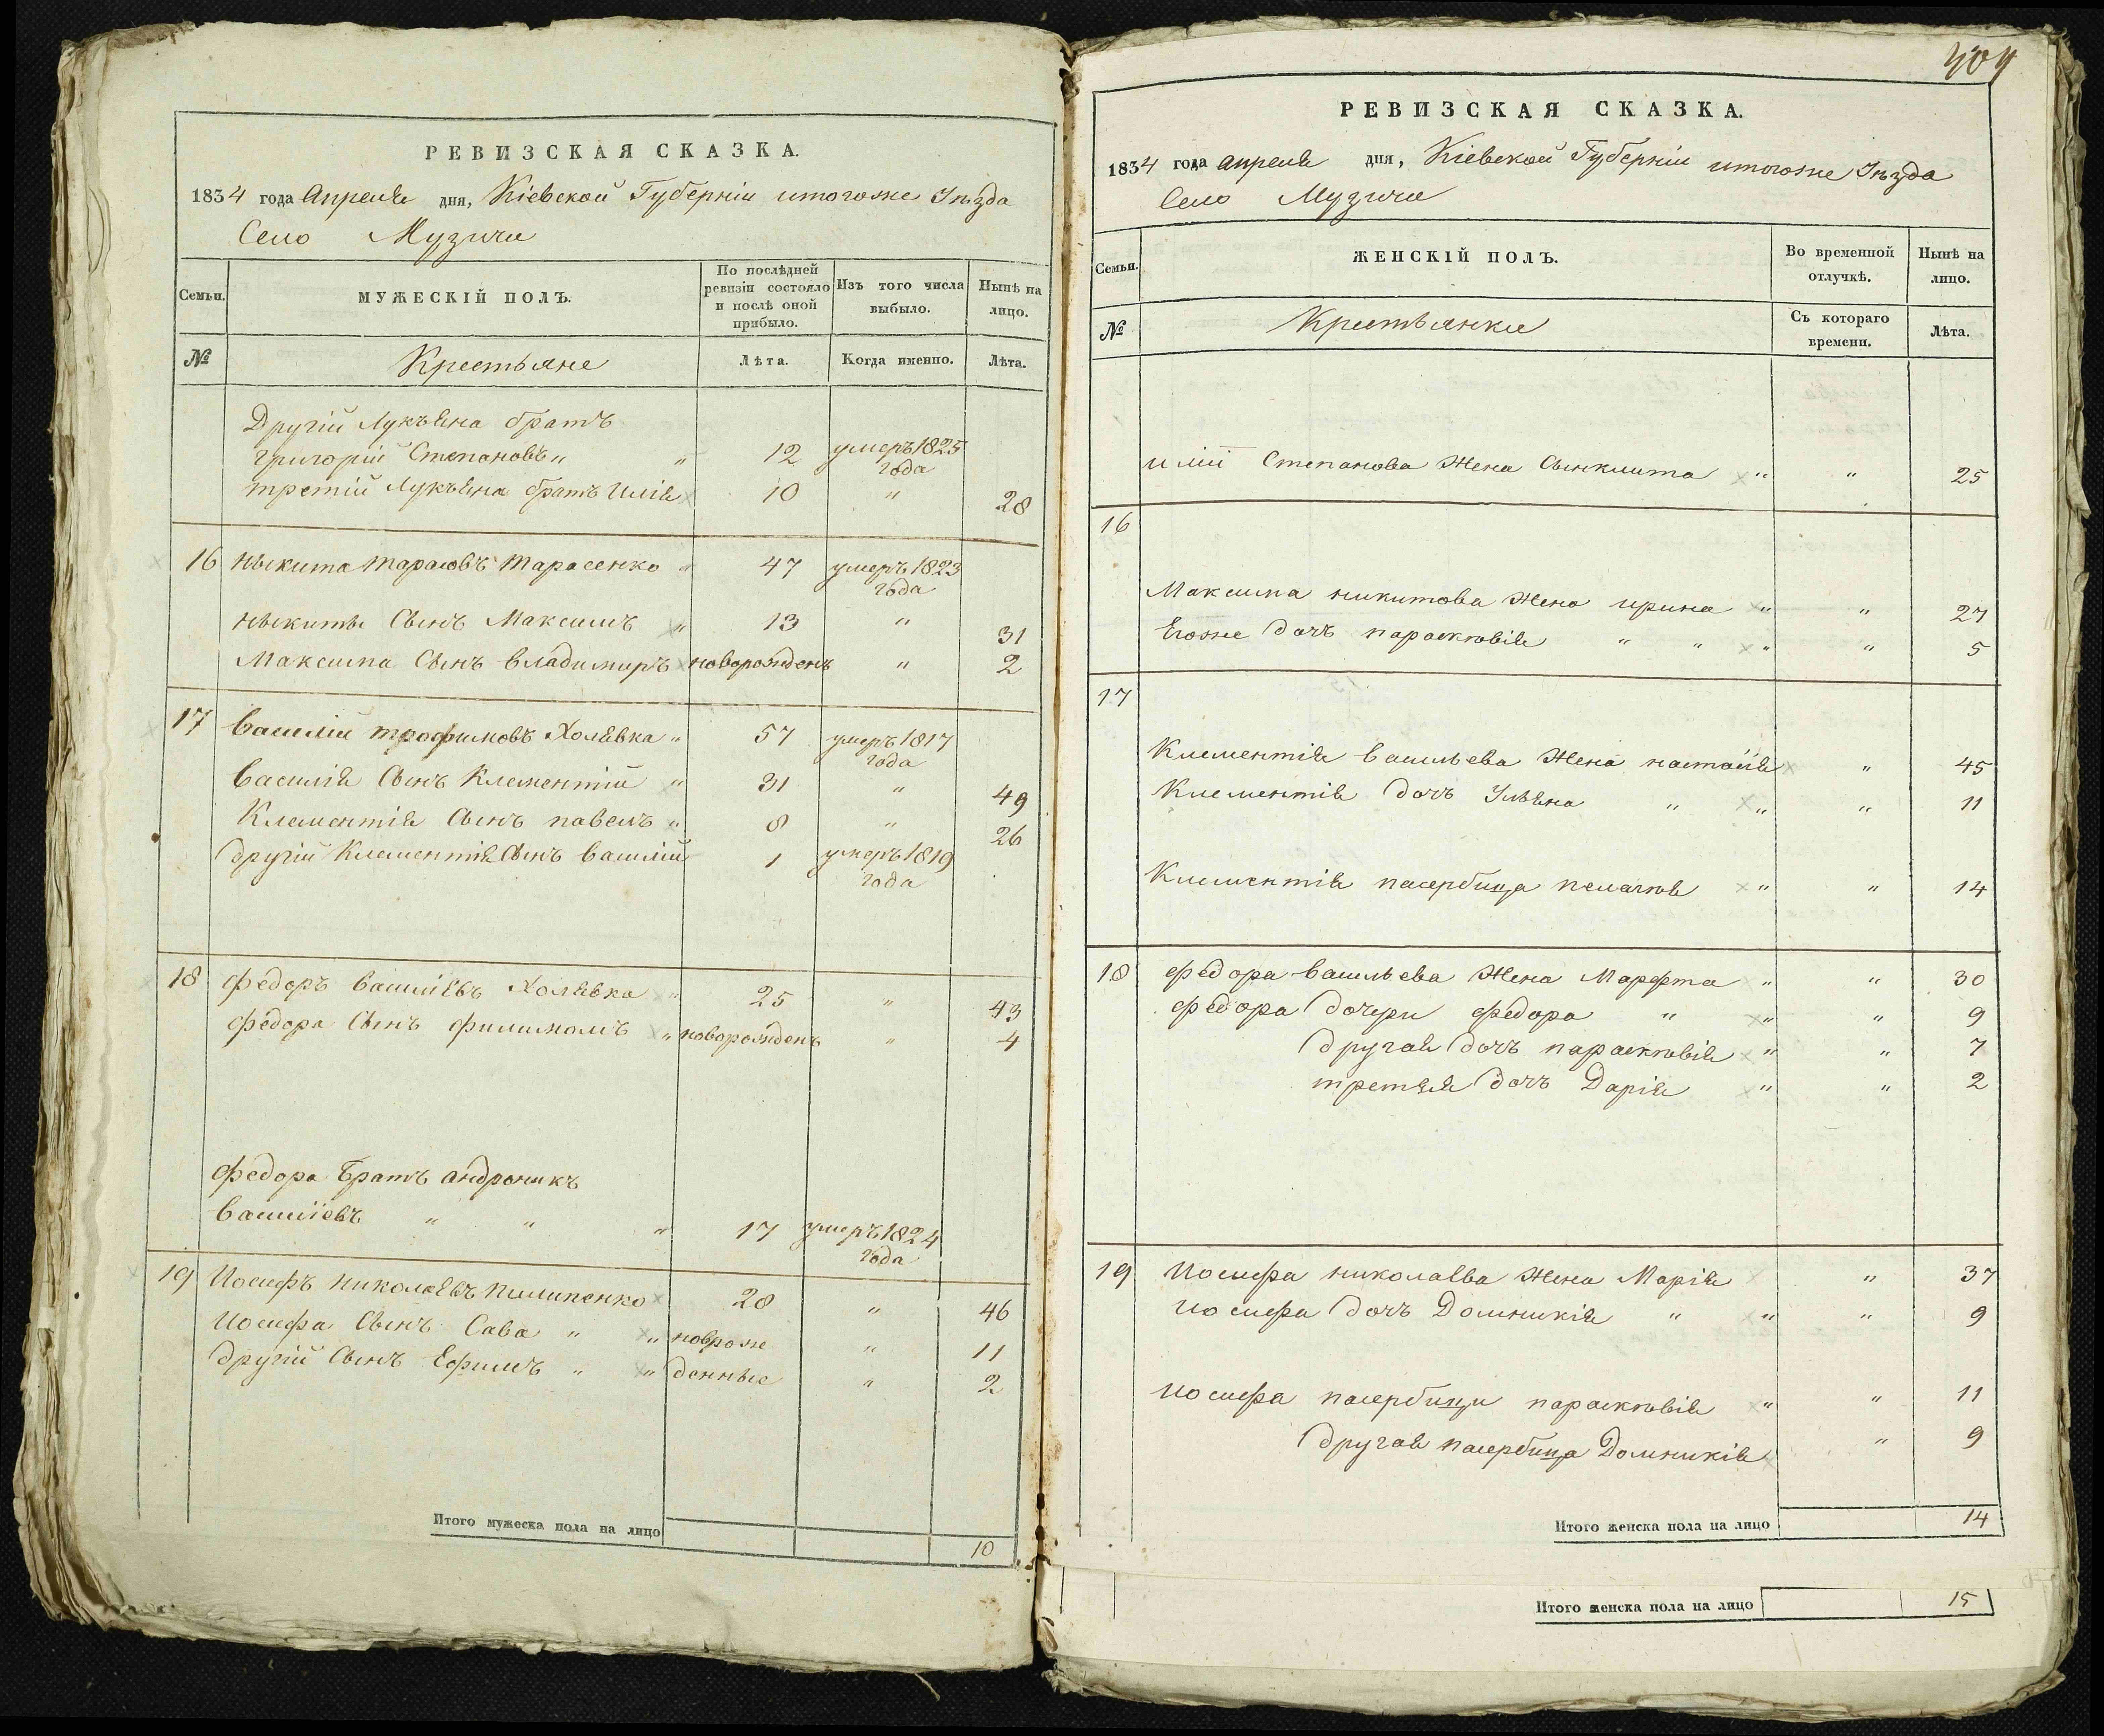 РЕВИЗСКАЯ СКАЗКА.
1834 года Апреля дня, Кіевской Губерніи итогоже Уѣзда
Село Музичи
Семьи.
МУЖЕСКІЙ ПОЛЪ.
По послѣдней ревизіи состояло и послѣ оной прибыло.
Изъ того числа выбыло.
Нынѣ на лицо.
№
Крестьяне
Лѣта.
Когда именно.
Лѣта.
Другій Лукъяна братъ
григорій Степановъ " " 12 умеръ 1825 года
третій Лукъяна братъ Илія 10 " 28
16 Никита тарасовъ тарасенко " 47 умеръ 1823 года
Никиты Сынъ Максимъ " 13 " 31
Максима Сынъ владимиръ новорожденъ " 2
17 Василій трофимовъ Холявка " 57 умеръ 1817 года
Василія Сынъ Клементій " 31 " 49
Клементія Сынъ павелъ " 8 " 26
другій Клементія Сынъ василій 1 умеръ 1819 года
18 федоръ василіевъ Холявка " 25 " 43
федора Сынъ филимонъ " новорожденъ " 4
федора братъ андроникъ
василіевъ " " " 17 умеръ 1824 года
19 Иосифъ николаевъ пилипенко 28 " 46
Иосифа Сынъ Сава " " новрож " 11
другій Сынъ Ефимъ " " денные " 2
Итого мужеска пола на лицо 10
404
РЕВИЗСКАЯ СКАЗКА.
1834 года апреля дня, Кіевской Губерніи итогоже Уѣзда
Село Музичи
Семьи.
ЖЕНСКІЙ ПОЛЪ.
Во временной отлучкѣ.
Нынѣ на лицо.
№
Крестьянки
Съ котораго времени.
Лѣта.
иліи Степанова Жена Сынклита " " 25
16
Максима никитова Жена ирина " " 27
Егоже дочъ параскювія " " " " 5
17
Клементія васильева Жена настасія " 45
Клементія дочъ Ульяна " " " 11
Клементія пасербица пелагия " " 14
18 федора васильева Жена Марфта " " 30
федора дочери федора " " " 9
другая дочъ параскювія " " 7
третяя дочъ Дарія " " 2
19 Иосифа николаева Жена Марія " 37
Иосифа дочъ Домникія " " " 9
Иосифа пасербици параскювія " " 11
другая пасербица Домникія " 9
Итого женска пола на лицо 14
Итого женска пола на лицо 15